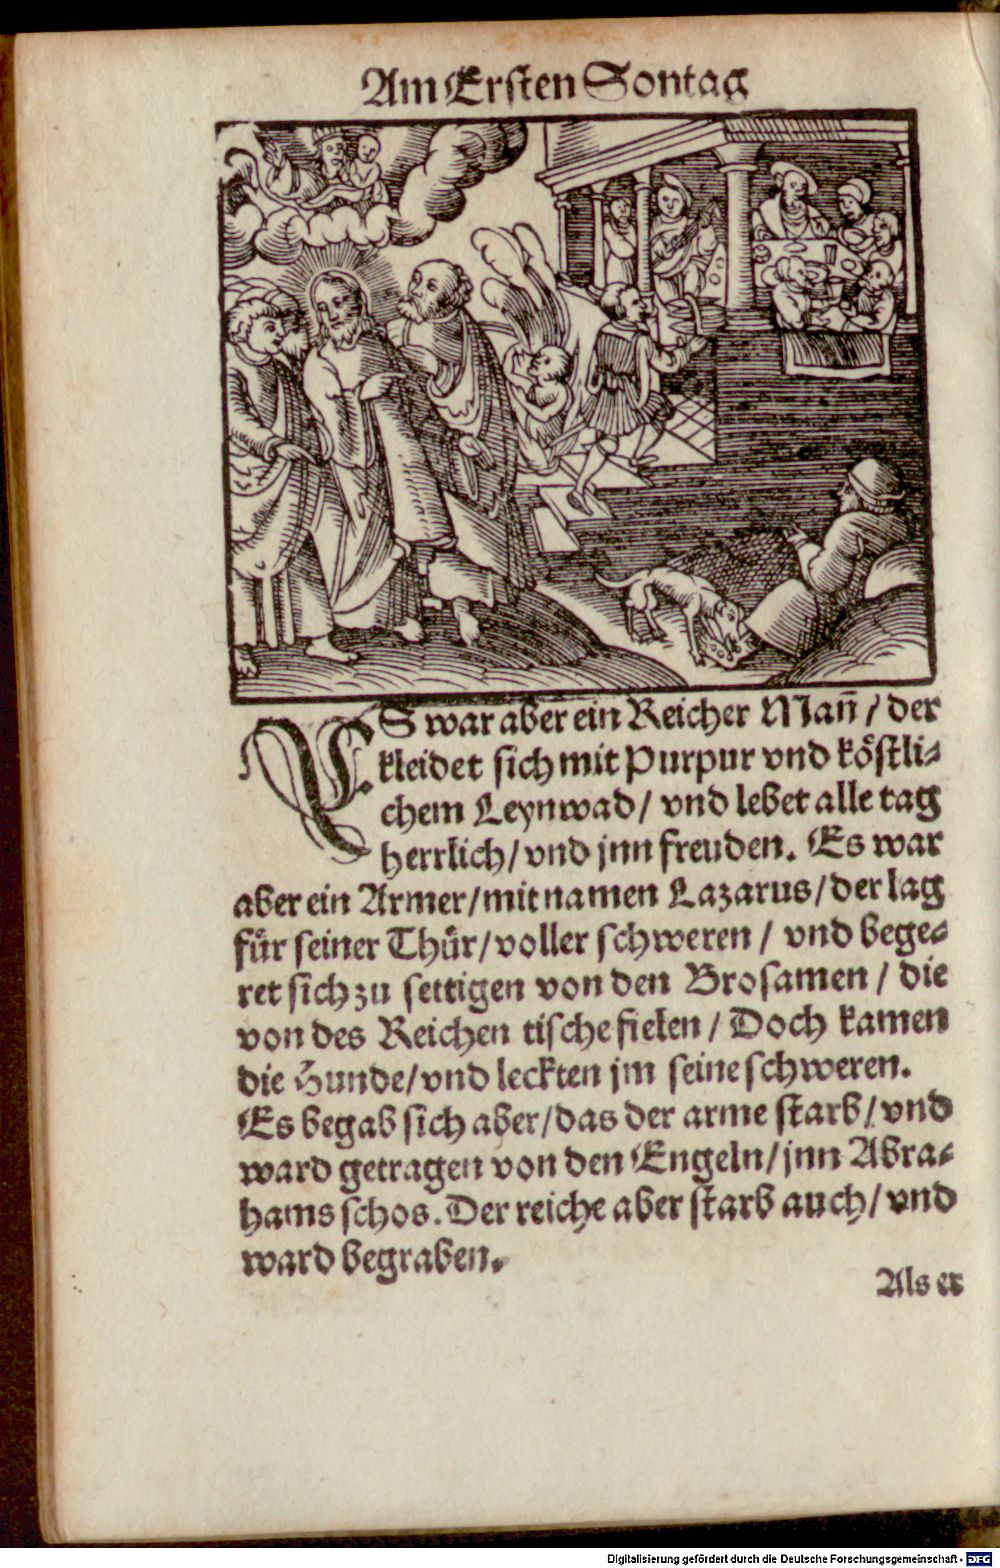 Am Ersten Sontag
ES war aber ein Reicher Mañ / der
kleidet sich mit Purpur vnd kôstli-
chem Leynwad / vnd lebet alle tag
herrlich / vnd jnn freuden. Es war
aber ein Armer / mit namen Lazarus / der lag
fůr seiner Thůr / voller schweren / vnd bege-
ret sich zu settigen von den Brosamen / die
von des Reichen tische fielen / Doch kamen
die Hunde / vnd leckten jm seine schweren.
Es begab sich aber / das der arme starb / vnd
ward getragen von den Engeln / jnn Abra-
hams schos. Der reiche aber starb auch / vnd
ward begraben.
Als er
Digitalisierung gefördert durch die Deutsche Forschungsgemeinschaft - DFG